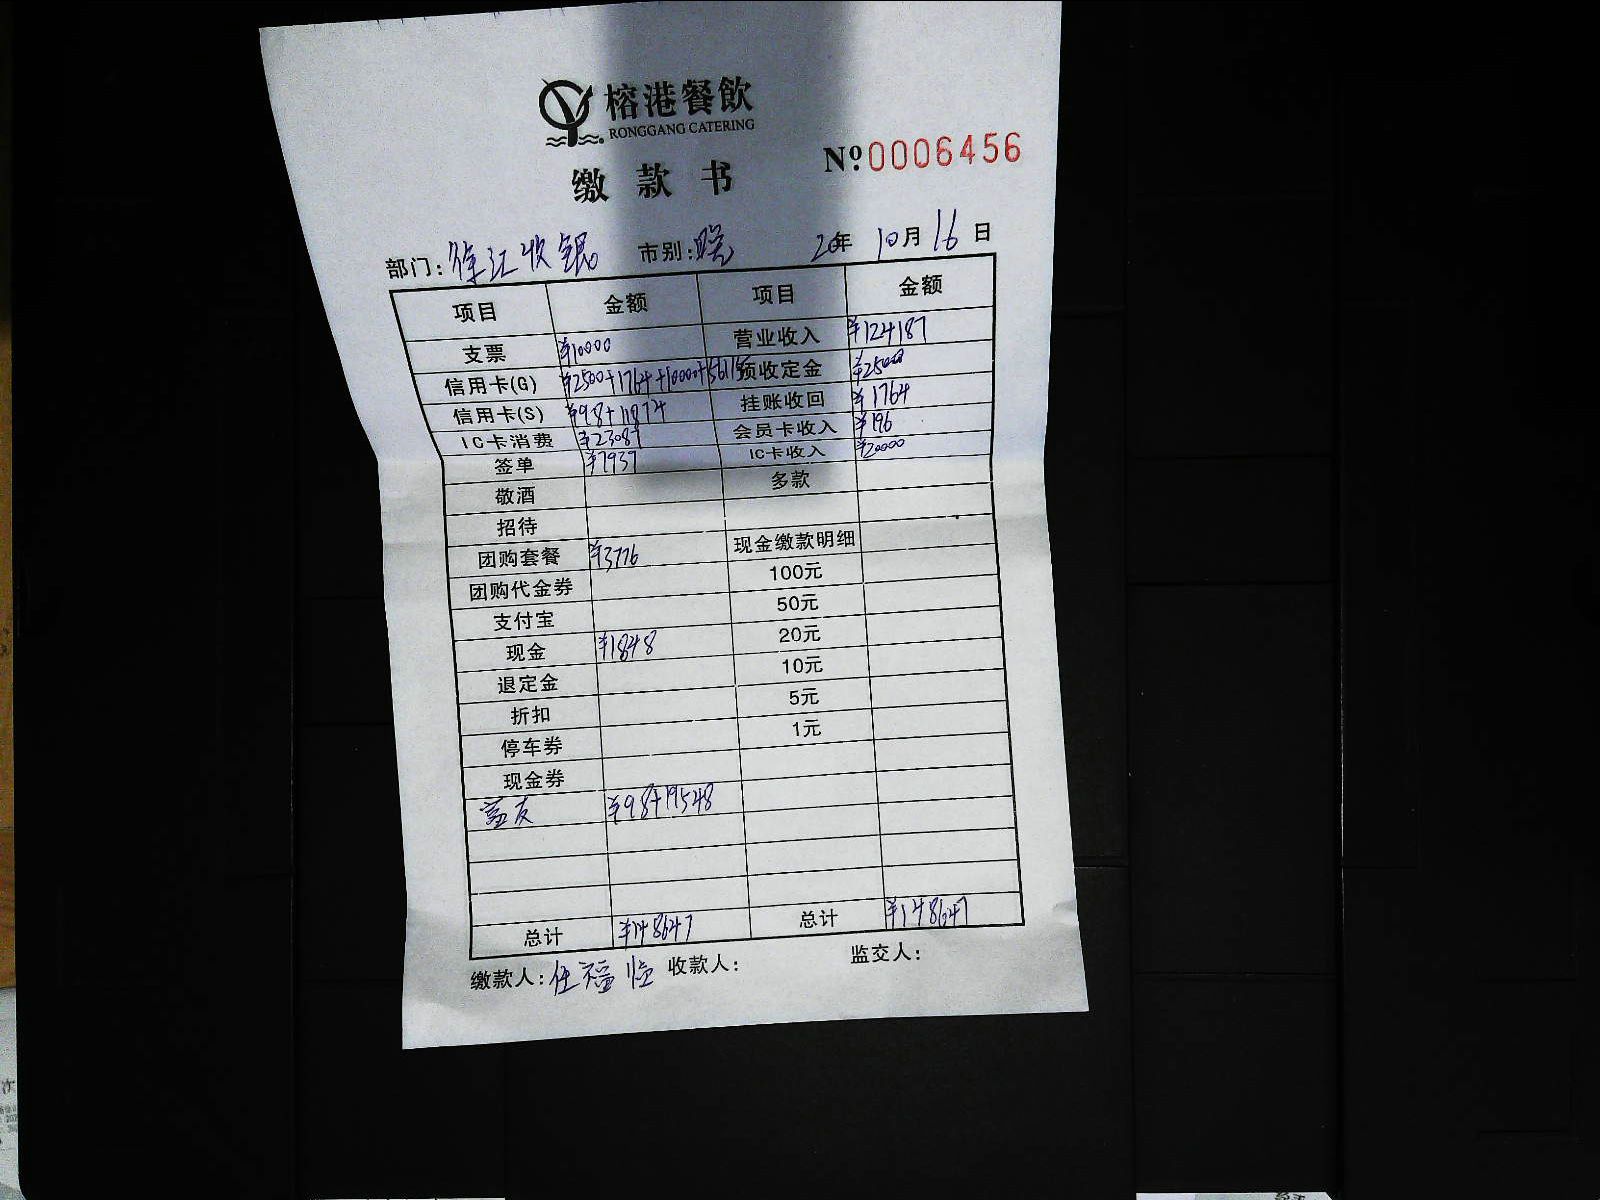 榕港餐飲
RONGGANG CATERING
缴款书
Nº:0006456
部门:徐汇收银 市别:晚 20年 10月16日
项目 金额 项目 金额
支票 ¥10000 营业收入 ¥124187
信用卡(G) ¥2500+1764+10000+56117 预收定金 ¥2500
信用卡(S) ¥98+11874 挂账收回 ¥1764
IC卡消费 ¥23087 会员卡收入 ¥196
签单 ¥7937 IC卡收入 ¥20000
敬酒 多款
招待
团购套餐 ¥3776 现金缴款明细
团购代金券 100元
支付宝 50元
现金 ¥1848 20元
退定金 10元
折扣 5元
停车券 1元
现金券
友 ¥98+19548
总计 ¥148647 总计 ¥148647
缴款人:任福临 收款人: 监交人: